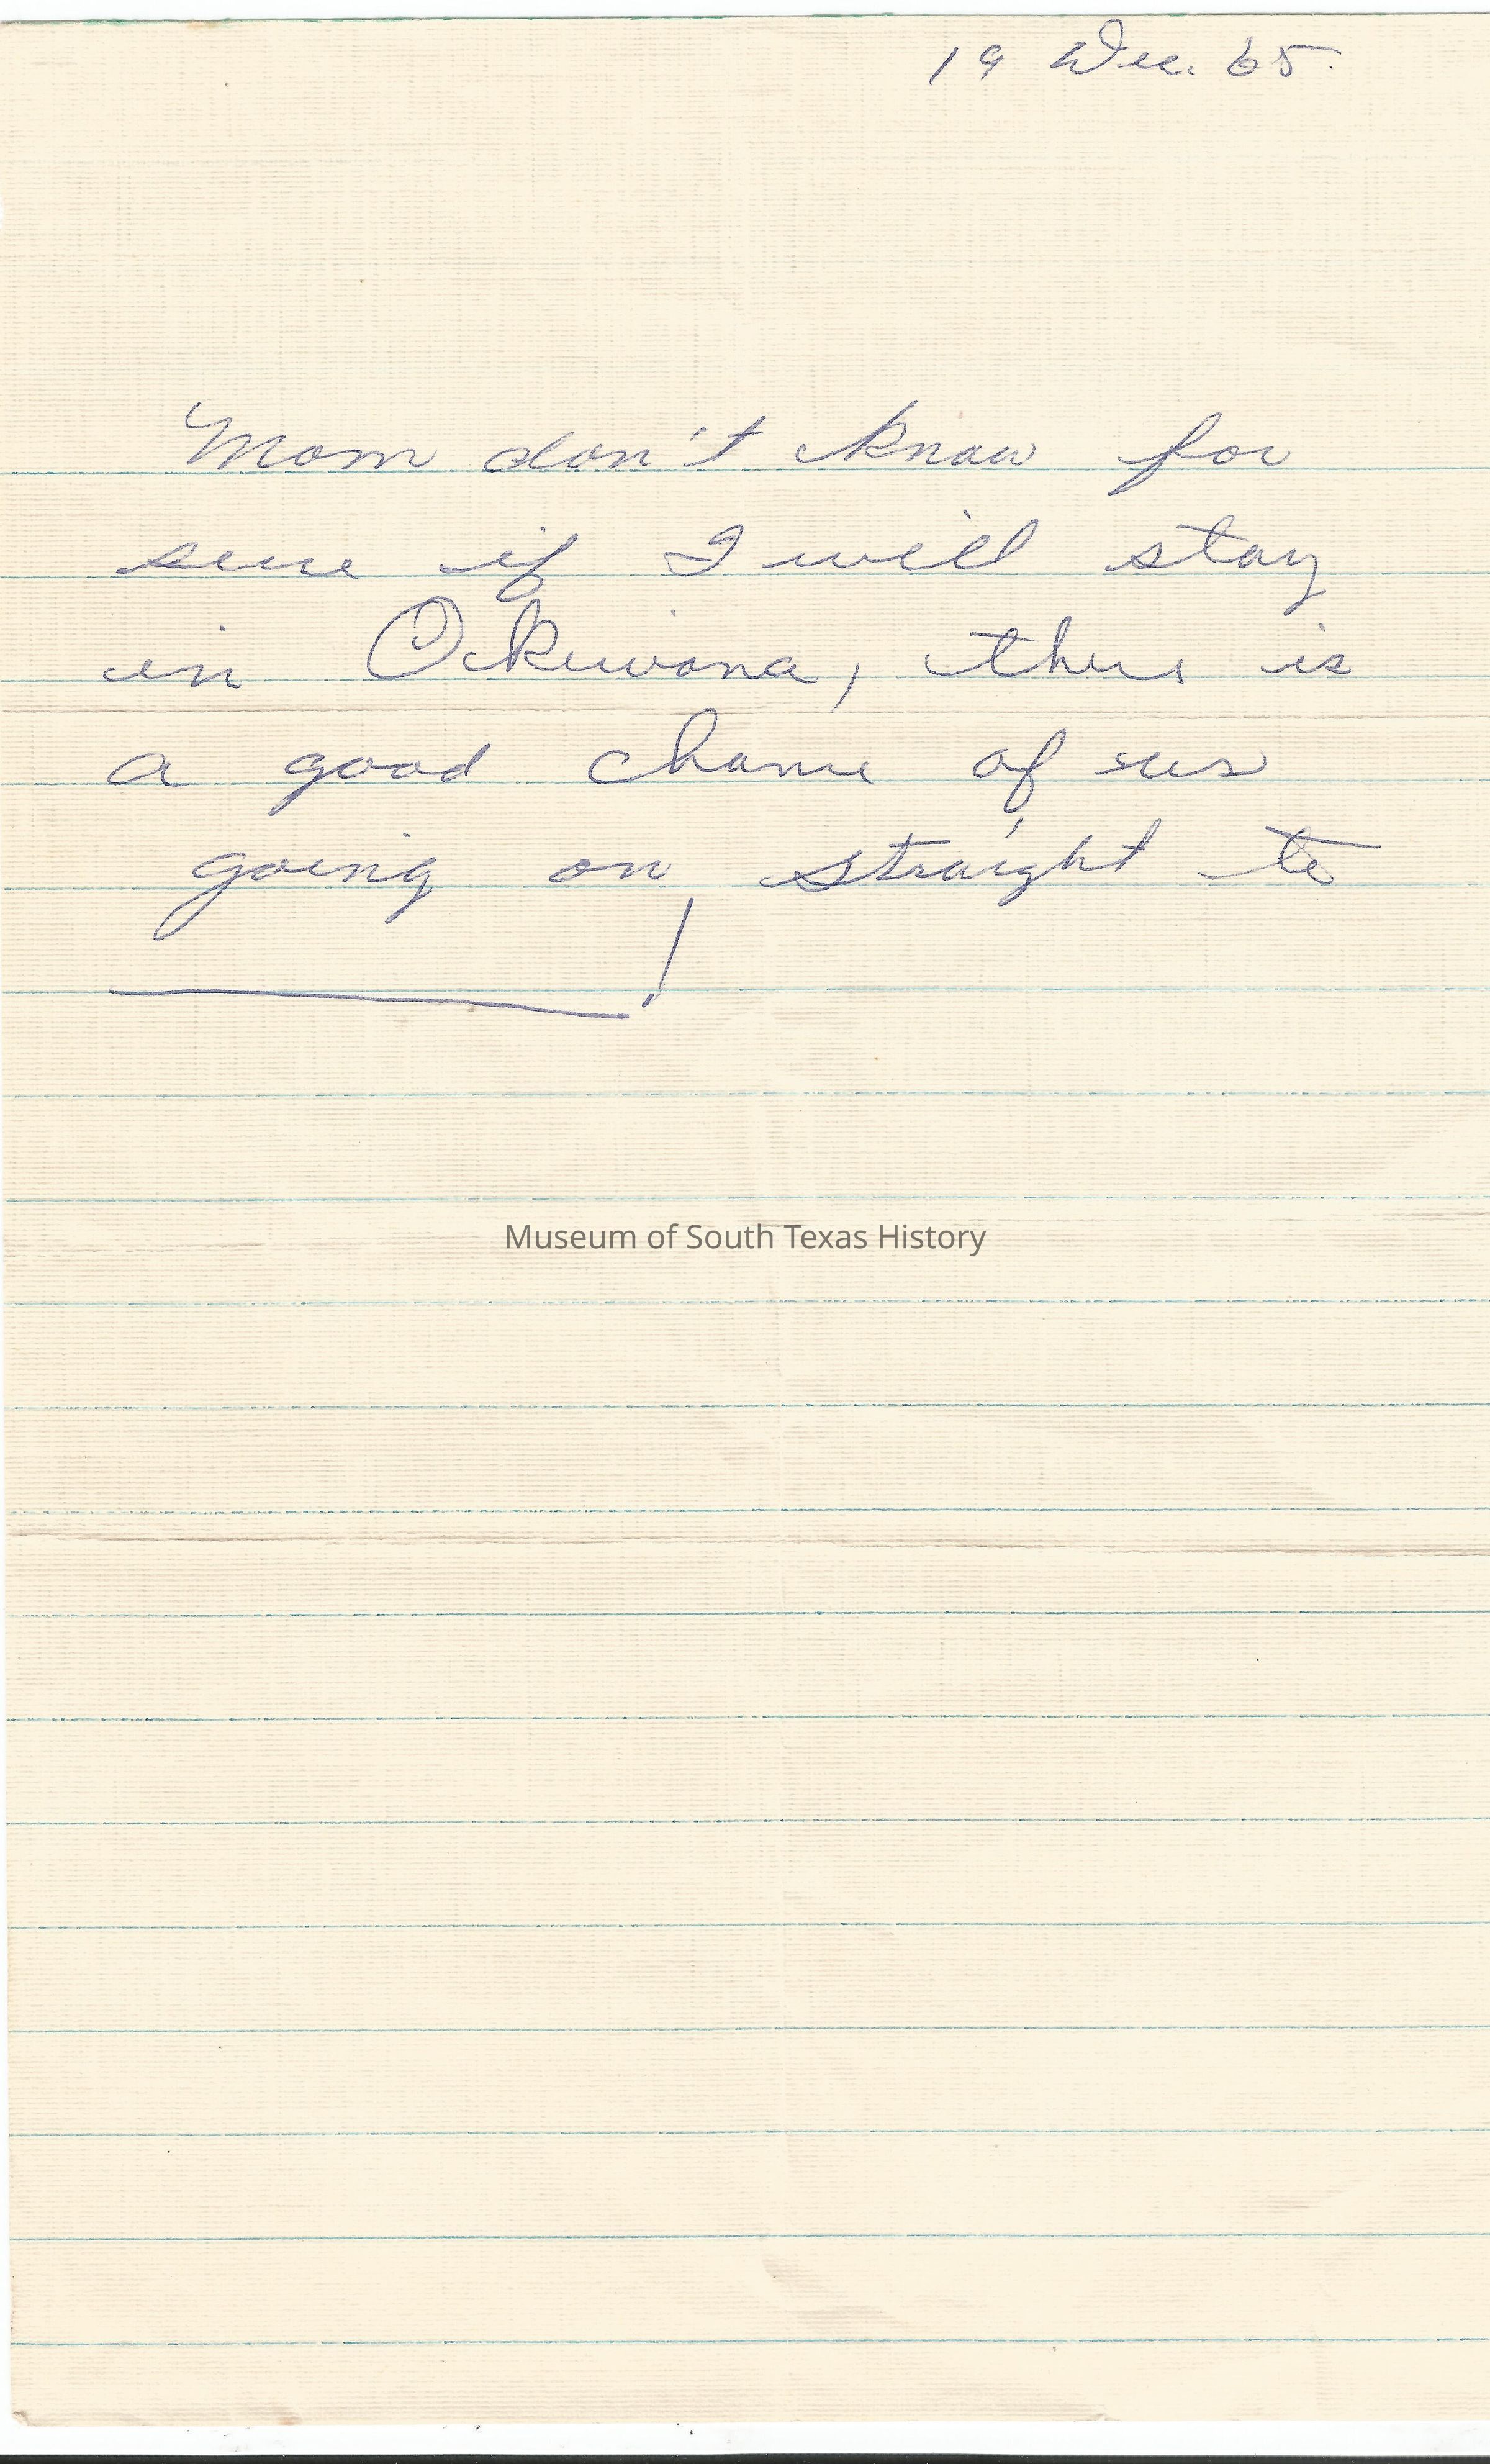 19 Dec. 65.
Mom don't know for
sure if I will stay
in Okiwana, there is
a good chance of us
going on straight to
________!
Museum of South Texas History